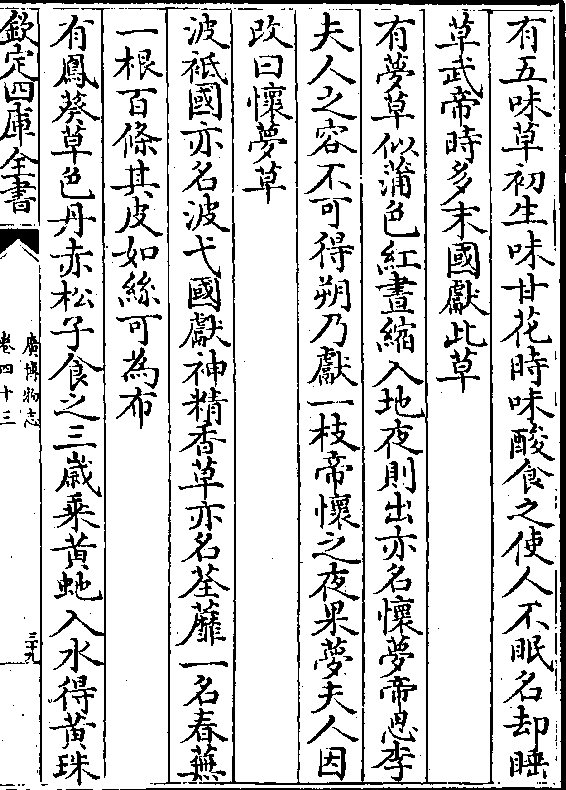 有五味草初生味甘花時味酸食之使人不眠名却睡
草武帝時多末國獻此草
有夢草似蒲色紅晝縮入地夜則出亦名懷夢帝思李
夫人之容不可得朔乃獻一枝帝懷之夜果夢夫人因
改曰懷夢草
波祗國亦名波弋國獻神精香草亦名荃蘼一名春蕪
一根百條其皮如絲可為布
有鳳葵草色丹赤松子食之三歲乘黃虵入水得黃珠
欽定四庫全書
廣博物志
卷四十三
三十九